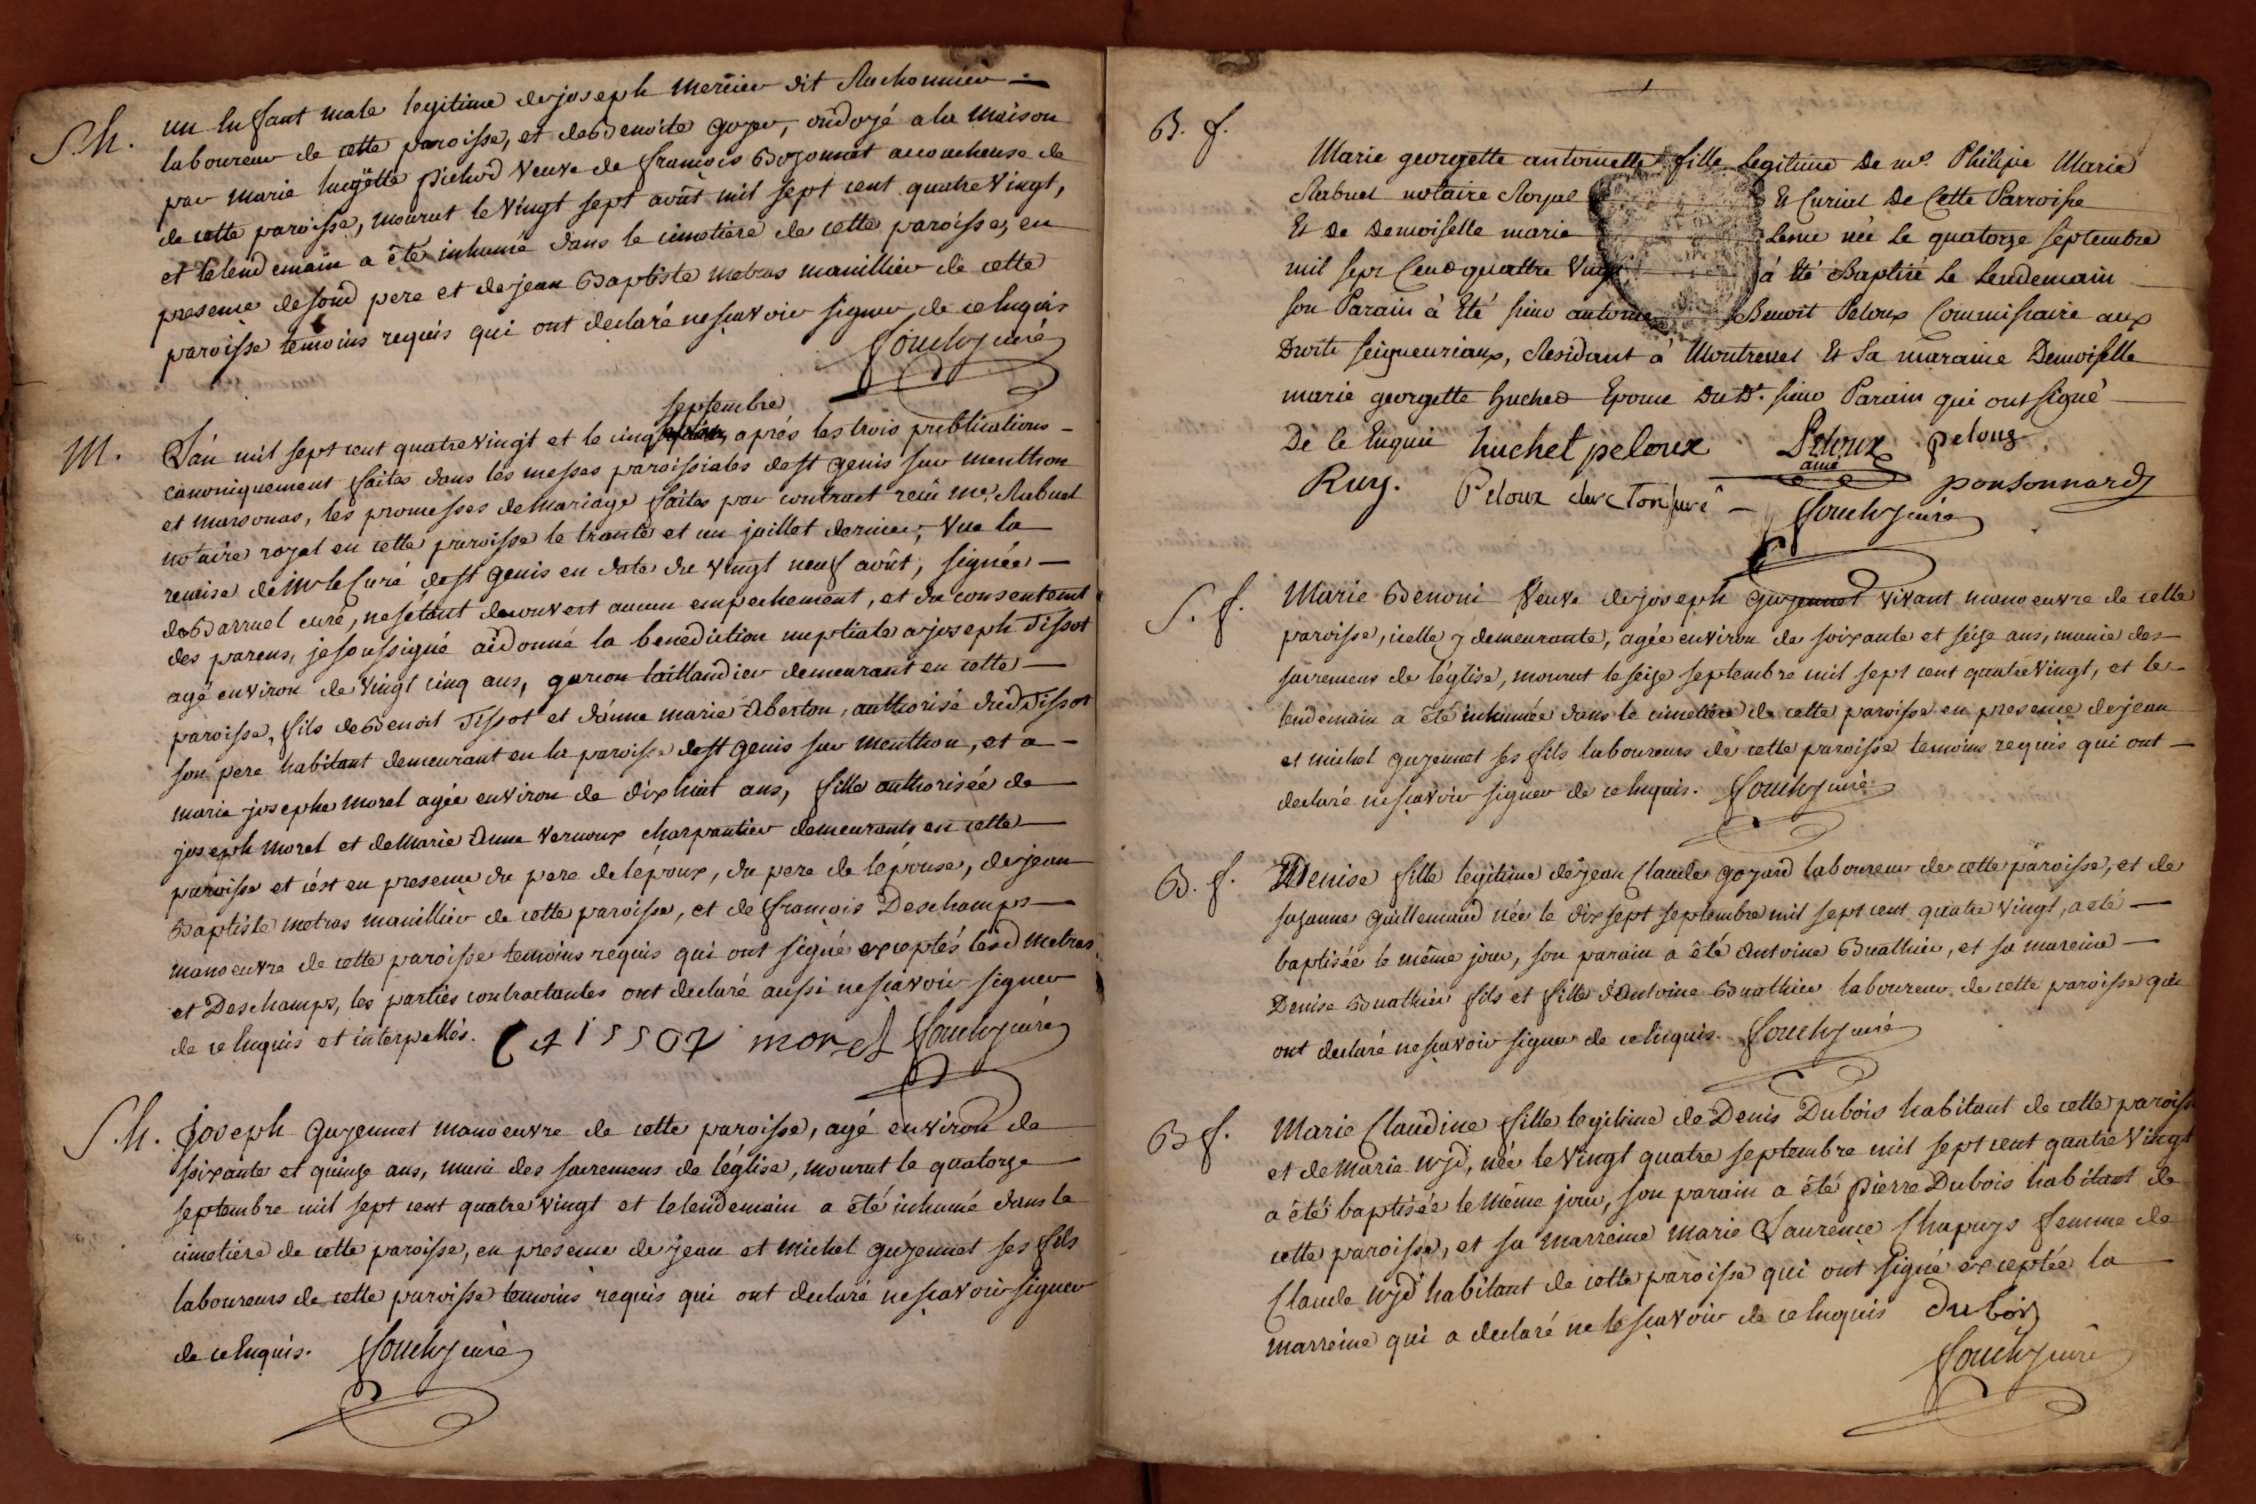 S.h.
un Enfant male legitime de joseph Mercier dit Ruchonnier
laboureur de cette paroisse, et de Benoite Goyer, ondoyé a la maison
par Marie huguette Pichod veuve de françois Bozonnet accoucheuse de
de cette paroisse, mourut le vingt sept août mil sept cent quatre vingt,
et le lendemain a été inhumé dans le cimetiere de cette paroisse, en
presence de son d pere et de jean Baptiste metras manillier de cette
paroisse temoins requis qui ont declaré ne sçavoir signer de ce Enquis
curé
M.
L'an mil sept cent quatre vingt et le cinq septembre, après les trois publications
canoniquement faites dans les messes paroissiales de st Genis sur Menthon
et marsonas, les promesses de mariage faites par contract reçu me. Rabuel
notaire royal en cette paroisse le trante et un juillet dernier, vue la
remise de Mr le Curé de st Genis en date du vingt neuf août, signée
de Barruel curé, ne s'étant decouvert aucun empechement, et du consentemt
des parens, je soussigné ai donné la benediction nuptiale a joseph Tissot
agé environ de vingt cinq ans, garcon taillandier demeurant en cette
paroisse, fils de Benoit Tissot et d'anne marie Aberton, authorisé dud Tissot
son pere habitant demeurant en la paroisse de st Genis sur Menthon, et a
marie josephe morel agée environ de dix huit ans, fille authorisée de
joseph morel et de Marie Anne Vernoux charpantier demeurants en cette
paroisse et c'est en presence du pere de l'époux, du pere de l'épouse, de jean
Baptiste metras manillier de cette paroisse, et de françois Deschamps
manoeuvre de cette paroisse temoins requis qui ont signé exceptés lesd Metras
et Deschamps, les parties contractantes ont declaré aussi ne sçavoir signer
de ce Enquis et interpellés. tissot morel curé
S.h.
joseph Guyennet manoeuvre de cette paroisse, agé environ de
soixante et quinze ans, muni des sacremens de l'église, mourut le quatorze
septembre mil sept cent quatre vingt et le lendemain a été inhumé dans le
cimetiere de cette paroisse, en presence de jean et Michel Guyennet ses fils
laboureurs de cette paroisse temoins requis qui ont declaré ne sçavoir signer
de ce Enquis. curé
B. f.
Marie georgette antoinette fille Legitime De me. Philipe Marie
Rabuel notaire Royal Et Curial De Cette Parroisse
Et De Demoiselle marie née Le quatorze septembre
mil sept Cend quattre Vingt à Eté Baptisé Le Lendemain
son Parain à Eté sieur antoine Benoit Peloux Commissaire aux
Droits seigneuriaux, Residant à Montrevel Et sa maraine Demoiselle
marie georgette huchet Epouse Du Dt. sieur Parain qui ont signé
De Ce Enquis huchet peloux Peloux peloux
ainé
Ruy. Peloux clerc Tonsuré ponsonnard
curé
S. f.
Marie Benoni veuve de joseph Guyennet vivant manoeuvre de cette
paroisse, icelle y demeurante, agée environ de soixante et seize ans, munie des
sacremens de l'église, mourut le seize septembre mil sept cent quatre vingt, et le
lendemain a été inhumée dans le cimetiere de cette paroisse en presence de jean
et michel Guyennet ses fils laboureurs de cette paroisse temoins requis qui ont
declaré ne sçavoir signer de ce Enquis. curé
B. f.
Denise fille legitime de jean Claude Goyard laboureur de cette paroisse, et de
sazanne Guillemaud née le dix sept septembre mil sept cent quatre vingt, a eté
baptisée le même jour, son parain a été Antoine Buathier, et sa mareine
Denise Buathier fils et fille d'Antoine Buathier laboureur de cette paroisse qui
ont declaré ne sçavoir signer de ce Enquis. curé
B f.
Marie Claudine fille legitime de Denis Dubois habitant de cette paroisse
et de Marie Wyd, née le vingt quatre septembre mil sept cent quatre vingt
a été baptisée le même jour, son parain a été pierre Dubois habitant de
cette paroisse, et sa marreine Marie Laurence Chapuys femme de
Claude Wyd habitant de cette paroisse qui ont signé exceptée la
marreine qui a declaré ne le sçavoir de ce Enquis Dubois
curé